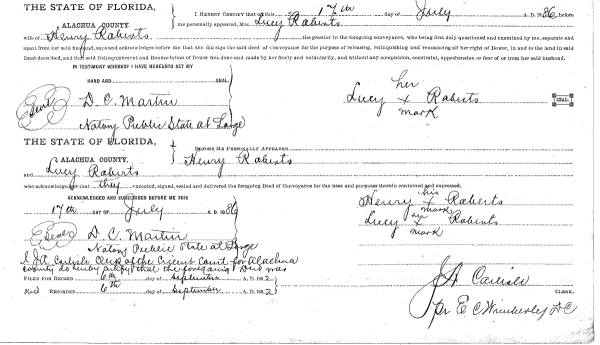 THE STATE OF FLORIDA,
ALACHUA COUNTY.
I HEREBY CERTIFY that on this 17th day of July A. D. 1886 before
me personally appeared, Mrs. Lucy Roberts
wife of Henry Roberts the grantor in the foregoing conveyance, who being first duly questioned and examined by me, separate and
apart from her said husband, says and acknowledges before me that she did sign the said deed of Conveyance for the purpose of releasing, relinquishing and renouncing all her right of Dower, in and to the land in said
Deed described, and that said Relinquishment and Renunciation of Dower was done and made by her freely and voluntarily, and without any compulsion, constraint, apprehension or fear of or from her said husband.
IN TESTIMONY WHEREOF I HAVE HEREUNTO SET MY
HAND AND SEAL
(Seal) D. C. Martin
Notary Public State at Large
her
Lucy x Roberts
mark
SEAL.
THE STATE OF FLORIDA,
ALACHUA COUNTY.
BEFORE ME PERSONALLY APPEARED
Henry Roberts
and Lucy Roberts
who acknowledged that they executed, signed, sealed and delivered the foregoing Deed of Conveyance for the uses and purposes therein contained and expressed.
ACKNOWLEDGED AND SUBSCRIBED BEFORE ME THIS
17th DAY OF July A. D. 1886
(Seal) D. C. Martin
Notary Public State at Large
his
Henry x Roberts
mark
her
Lucy x Roberts
mark
I J A Carlisle Clerk of the Circuit Court for Alachua
County do hereby certify that the foregoing Deed was
FILED FOR RECORD 6th day of September A. D. 189
and RECORDED 6th day of September A. D. 189
J A Carlisle
CLERK.
Pr E C Wimberley D C